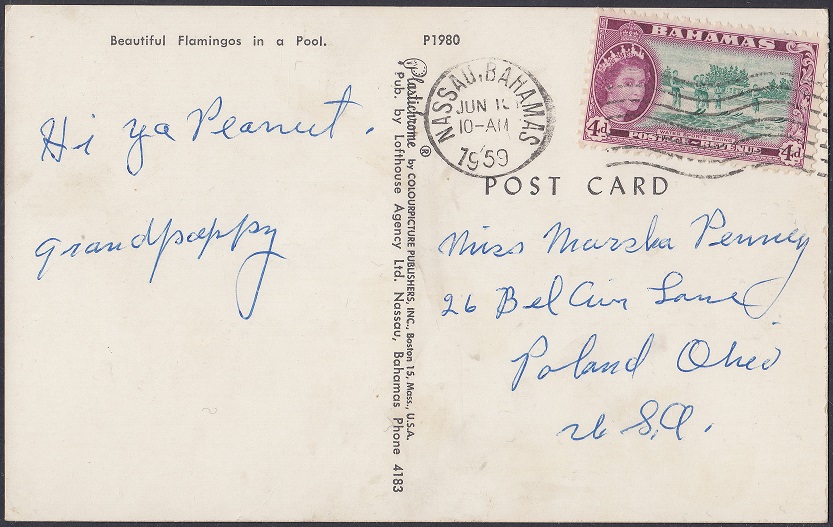 Beautiful Flamingos in a Pool.
P1980
Hi ya Peanut.
Grandpappy
Plastichrome ® by COLOURPICTURE PUBLISHERS, INC., Boston 15, Mass., U.S.A.
Pub. by Lofthouse Agency Ltd. Nassau, Bahamas Phone 4183
NASSAU, BAHAMAS
JUN
10-AM
1959
BAHAMAS
4d
POSTAGE REVENUE
4d
POST CARD
Miss Marsha Penney
26 Bel Air Lane
Poland Ohio
U.S.A.